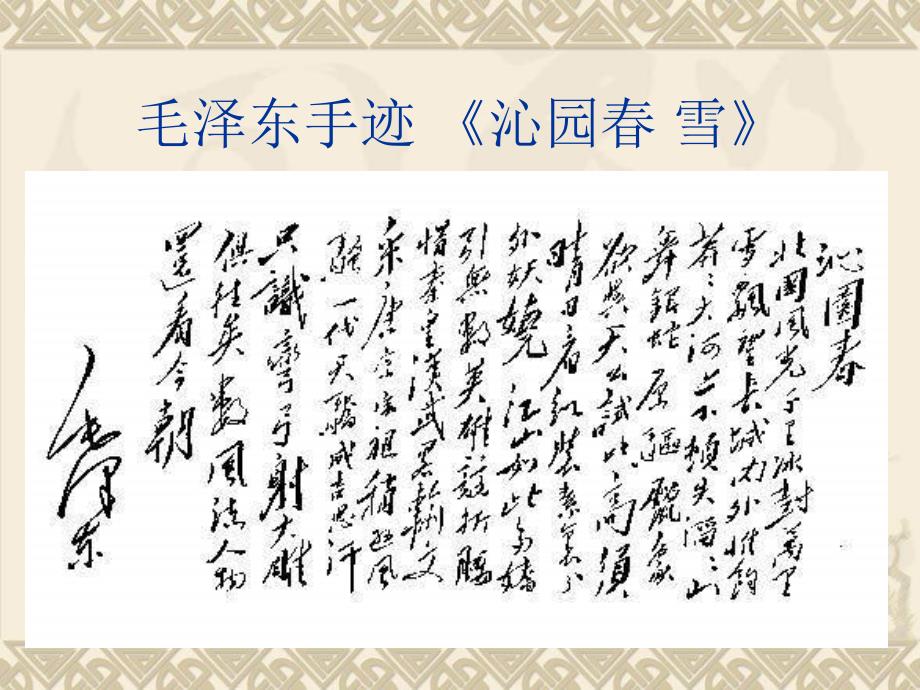 毛泽东手迹 《沁园春 雪》
沁園春
北國風光千里冰封萬里
雪飄望長城内外惟餘
莽〻大河上下頓失滔〻山
舞銀蛇原驅臘象
欲與天公試比高須
晴日看紅裝素裹分
外妖嬈江山如此多嬌
引無數英雄競折腰
惜秦皇漢武略輸文
采唐宗宋祖稍遜風
騷一代天驕成吉思汗
只識彎弓射大雕
俱往矣數風流人物
還看今朝
毛澤東